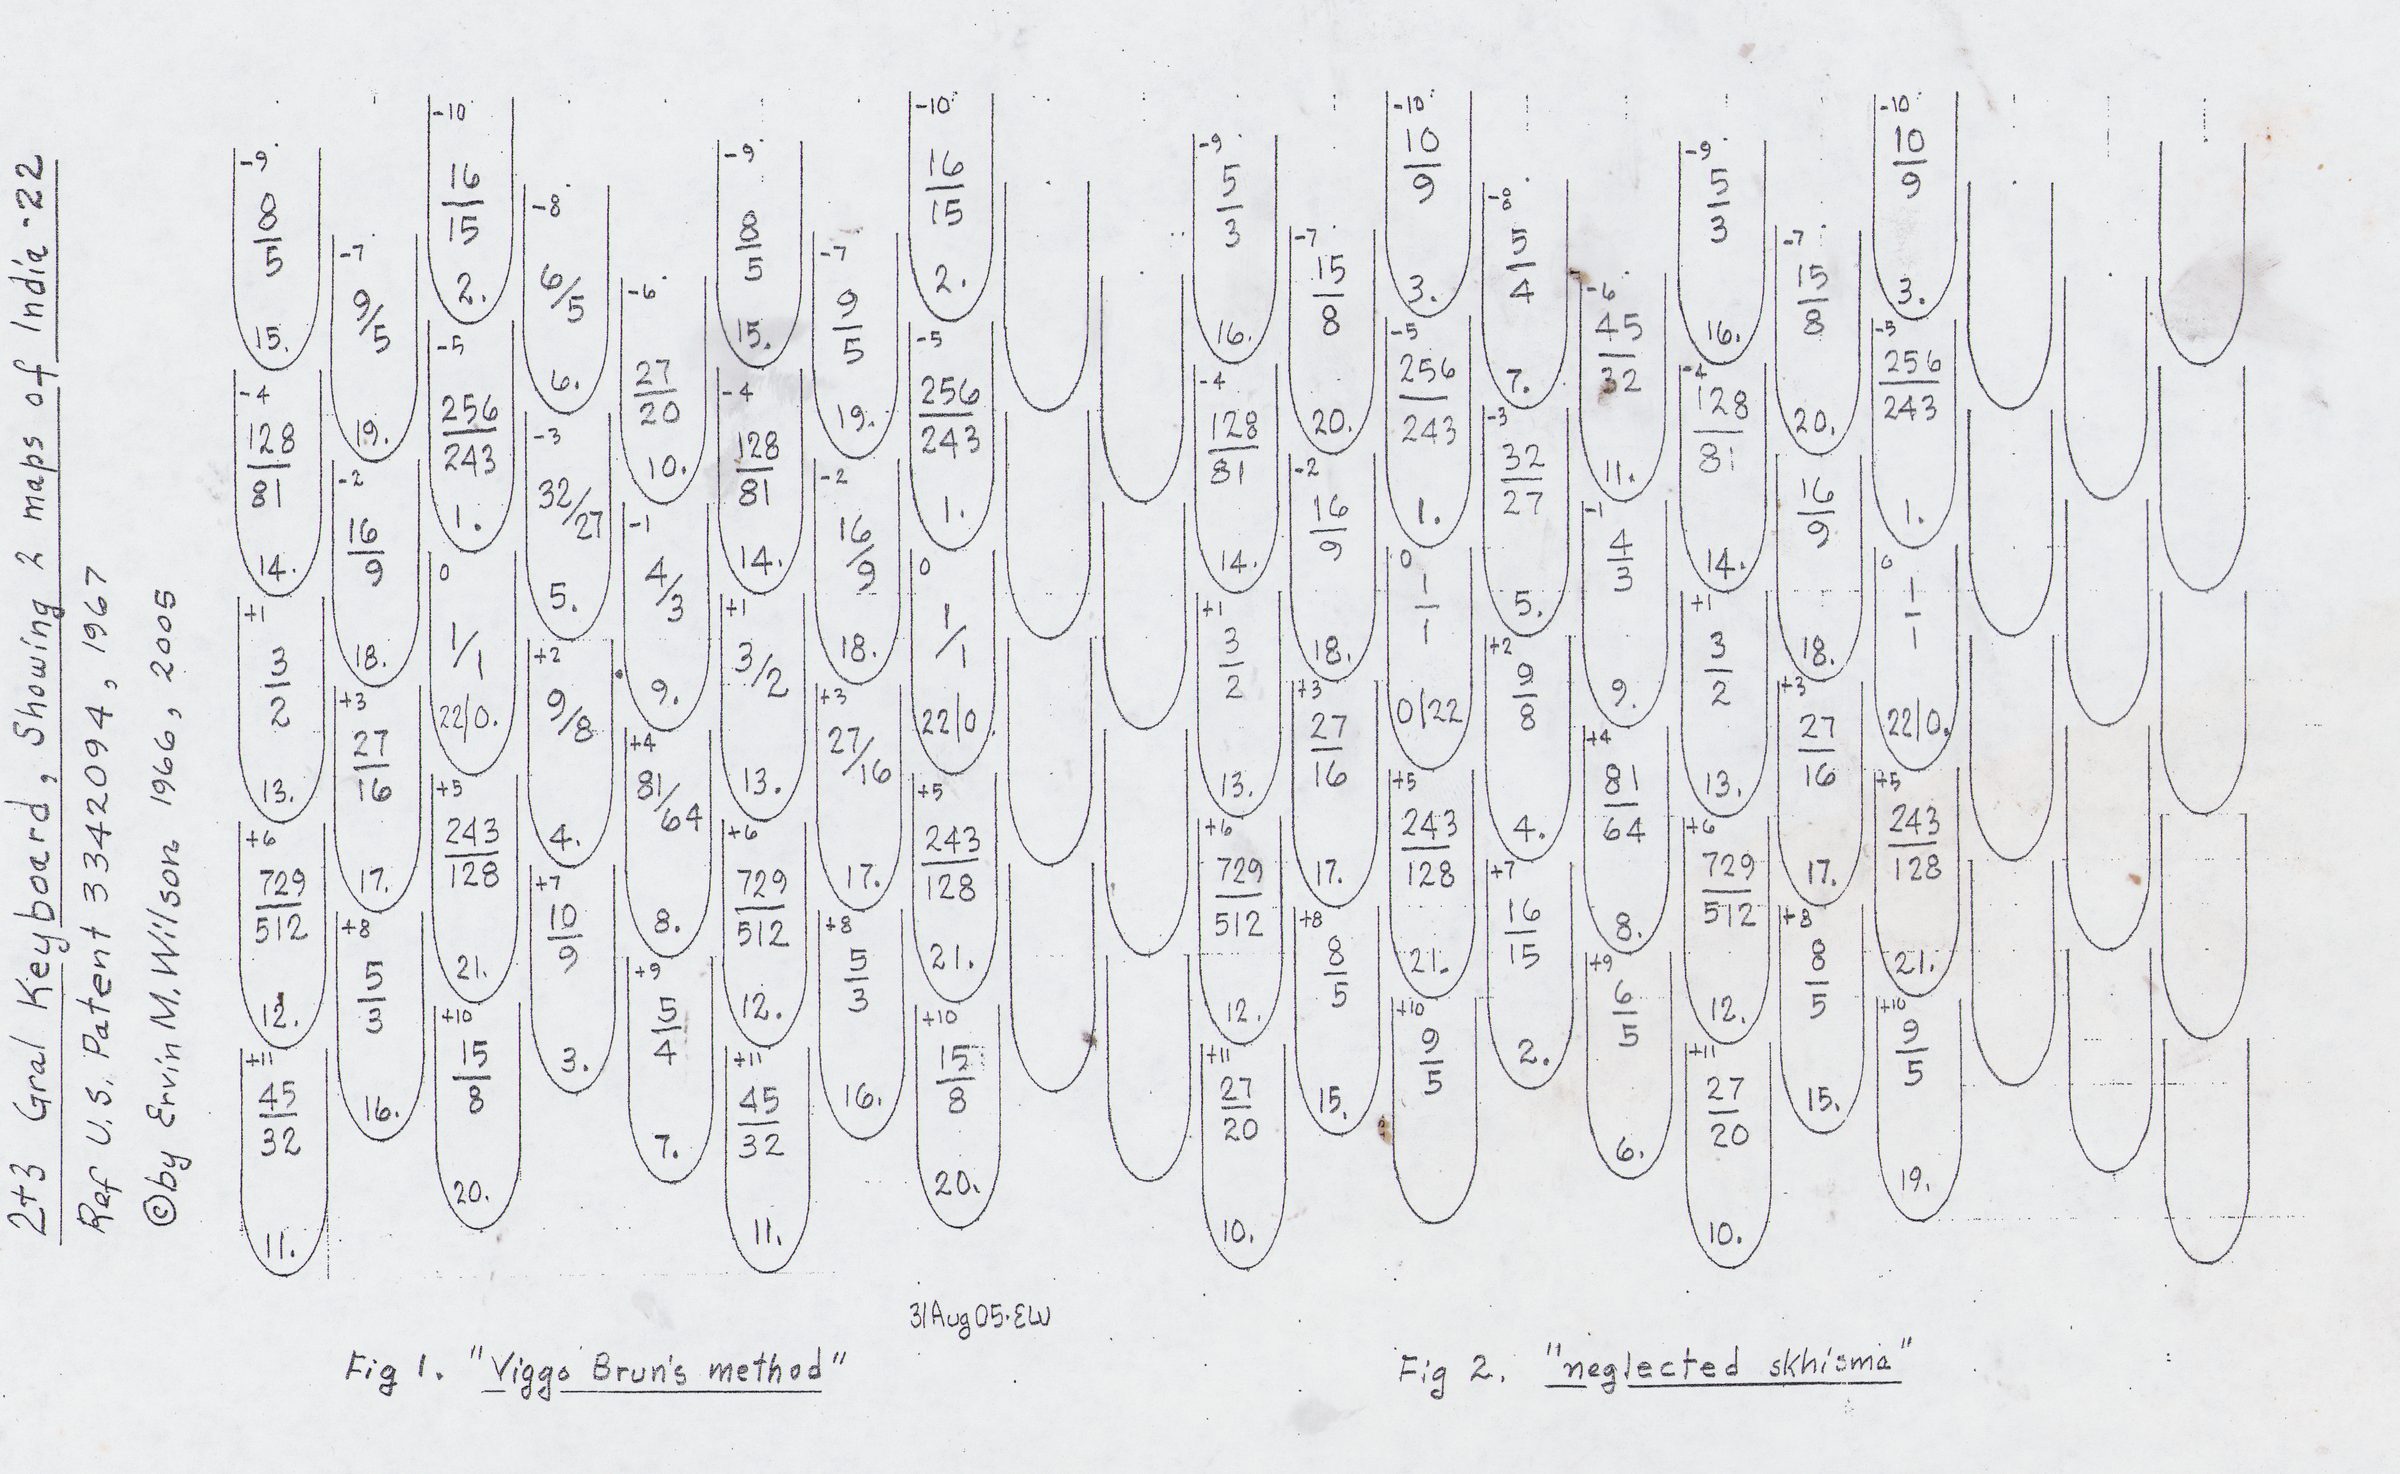 2+3 Gral Keyboard, Showing 2 maps of India-22
Ref U.S. Patent 3342094, 1967
©by Ervin M. Wilson 1966, 2005
-9 8/5 15.
-4 128/81 14.
+1 3/2 13.
+6 729/512 12.
+11 45/32 11.
-7 9/5 19.
-2 16/9 18.
+3 27/16 17.
+8 5/3 16.
-10 16/15 2.
-5 256/243 1.
0 1/1 22/0.
+5 243/128 21.
+10 15/8 20.
-8 6/5 6.
-3 32/27 5.
+2 9/8 4.
+7 10/9 3.
-6 27/20 10.
-1 4/3 9.
+4 81/64 8.
+9 5/4 7.
-9 8/5 15.
-4 128/81 14.
+1 3/2 13.
+6 729/512 12.
+11 45/32 11.
-7 9/5 19.
-2 16/9 18.
+3 27/16 17.
+8 5/3 16.
-10 16/15 2.
-5 256/243 1.
0 1/1 22/0
+5 243/128 21.
+10 15/8 20.
-9 5/3 16.
-4 128/81 14.
+1 3/2 13.
+6 729/512 12.
+11 27/20 10.
-7 15/8 20.
-2 16/9 18.
+3 27/16 17.
+8 8/5 15.
-10 10/9 3.
-5 256/243 1.
0 1/1 0/22
+5 243/128 21.
+10 9/5
-8 5/4 7.
-3 32/27 5.
+2 9/8 4.
+7 16/15 2.
-6 45/32 11.
-1 4/3 9.
+4 81/64 8.
+9 6/5 6.
-9 5/3 16.
-4 128/81 14.
+1 3/2 13.
+6 729/512 12.
+11 27/20 10.
-7 15/8 20.
16/9 18.
+3 27/16 17.
+8 8/5 15.
-10 10/9 3.
-5 256/243 1.
0 1/1 22/0.
+5 243/128 21.
+10 9/5 19.
31Aug05·EW
Fig 1. "Viggo Brun's method"
Fig 2. "neglected skhisma"